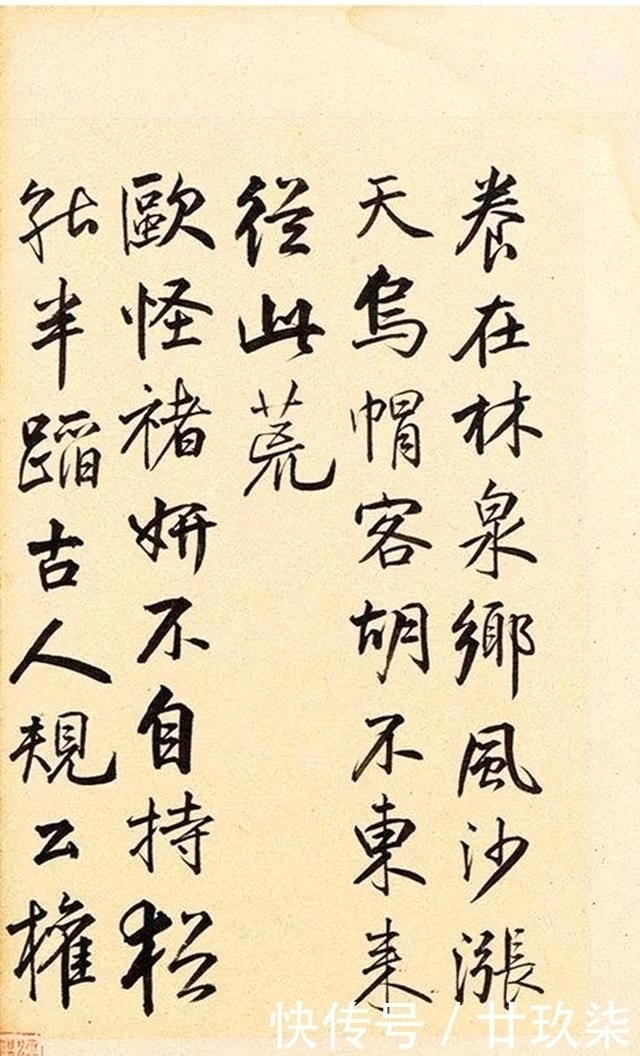 養在林泉鄉風沙漲
天烏帽客胡不東來
從此荒
歐怪褚妍不自持猶
能半蹈古人規公權
快传号 / 廿玖柒